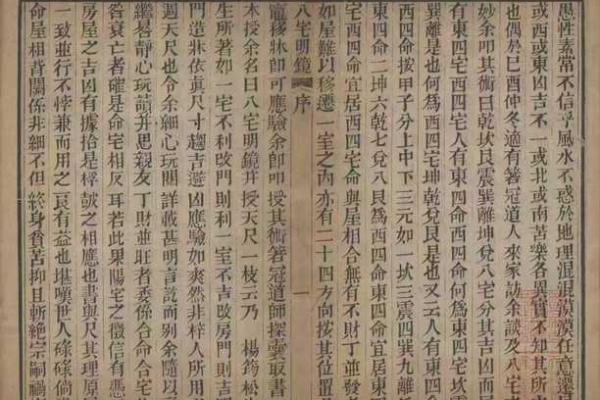 愚性素常不信乎風水不惑於地理混混漠漠任意遷
或西或東凶吉不一或北或南苦樂各異實不知其所
也偶於己酉仲冬適有著冠道人來家訪余談及八宅
妙余叩其術曰乾坎艮震巽離坤兌八宅分其吉凶而居
有東四宅西四宅人有東四命西四命何為東四宅坎震
巽離是也何為西四宅坤乾兌艮是也又云人有東四命
西四命按甲子分上中下三元如一坎三震四巽九離
東四命二坤六乾七兌八艮為西四命東四命宜居東四
宅西四命宜居西四宅命與屋相合無有不財丁並發
如屋難以移遷一室之內亦有二十四方向按其位置
八宅明鏡 序 一
竈移牀即可應驗余即叩授其術著冠道師探雲叢書
本授余名曰八宅明鏡并授天尺一枝云乃 楊筠松
生所著如一宅不利改門則利一室不吉改房門則吉
門造牀依真尺寸趨吉避凶應驗如爽然非梓人所用
週天尺也今余細心玩閱詳載甚明言說而別余隨以
繼晷靜心玩讀并思親友丁財並旺者委係合命合宅
咎衰亡者確是命宅相反耳若此果陽宅之徵信有憑
房屋之吉凶有據拾是之相應也書與尺其理原
一致並行不悖兼而用之良有益也堪嘆世人碌碌倘
命屋相背關係非細不但終身貧苦抑且斬絕宗嗣禍